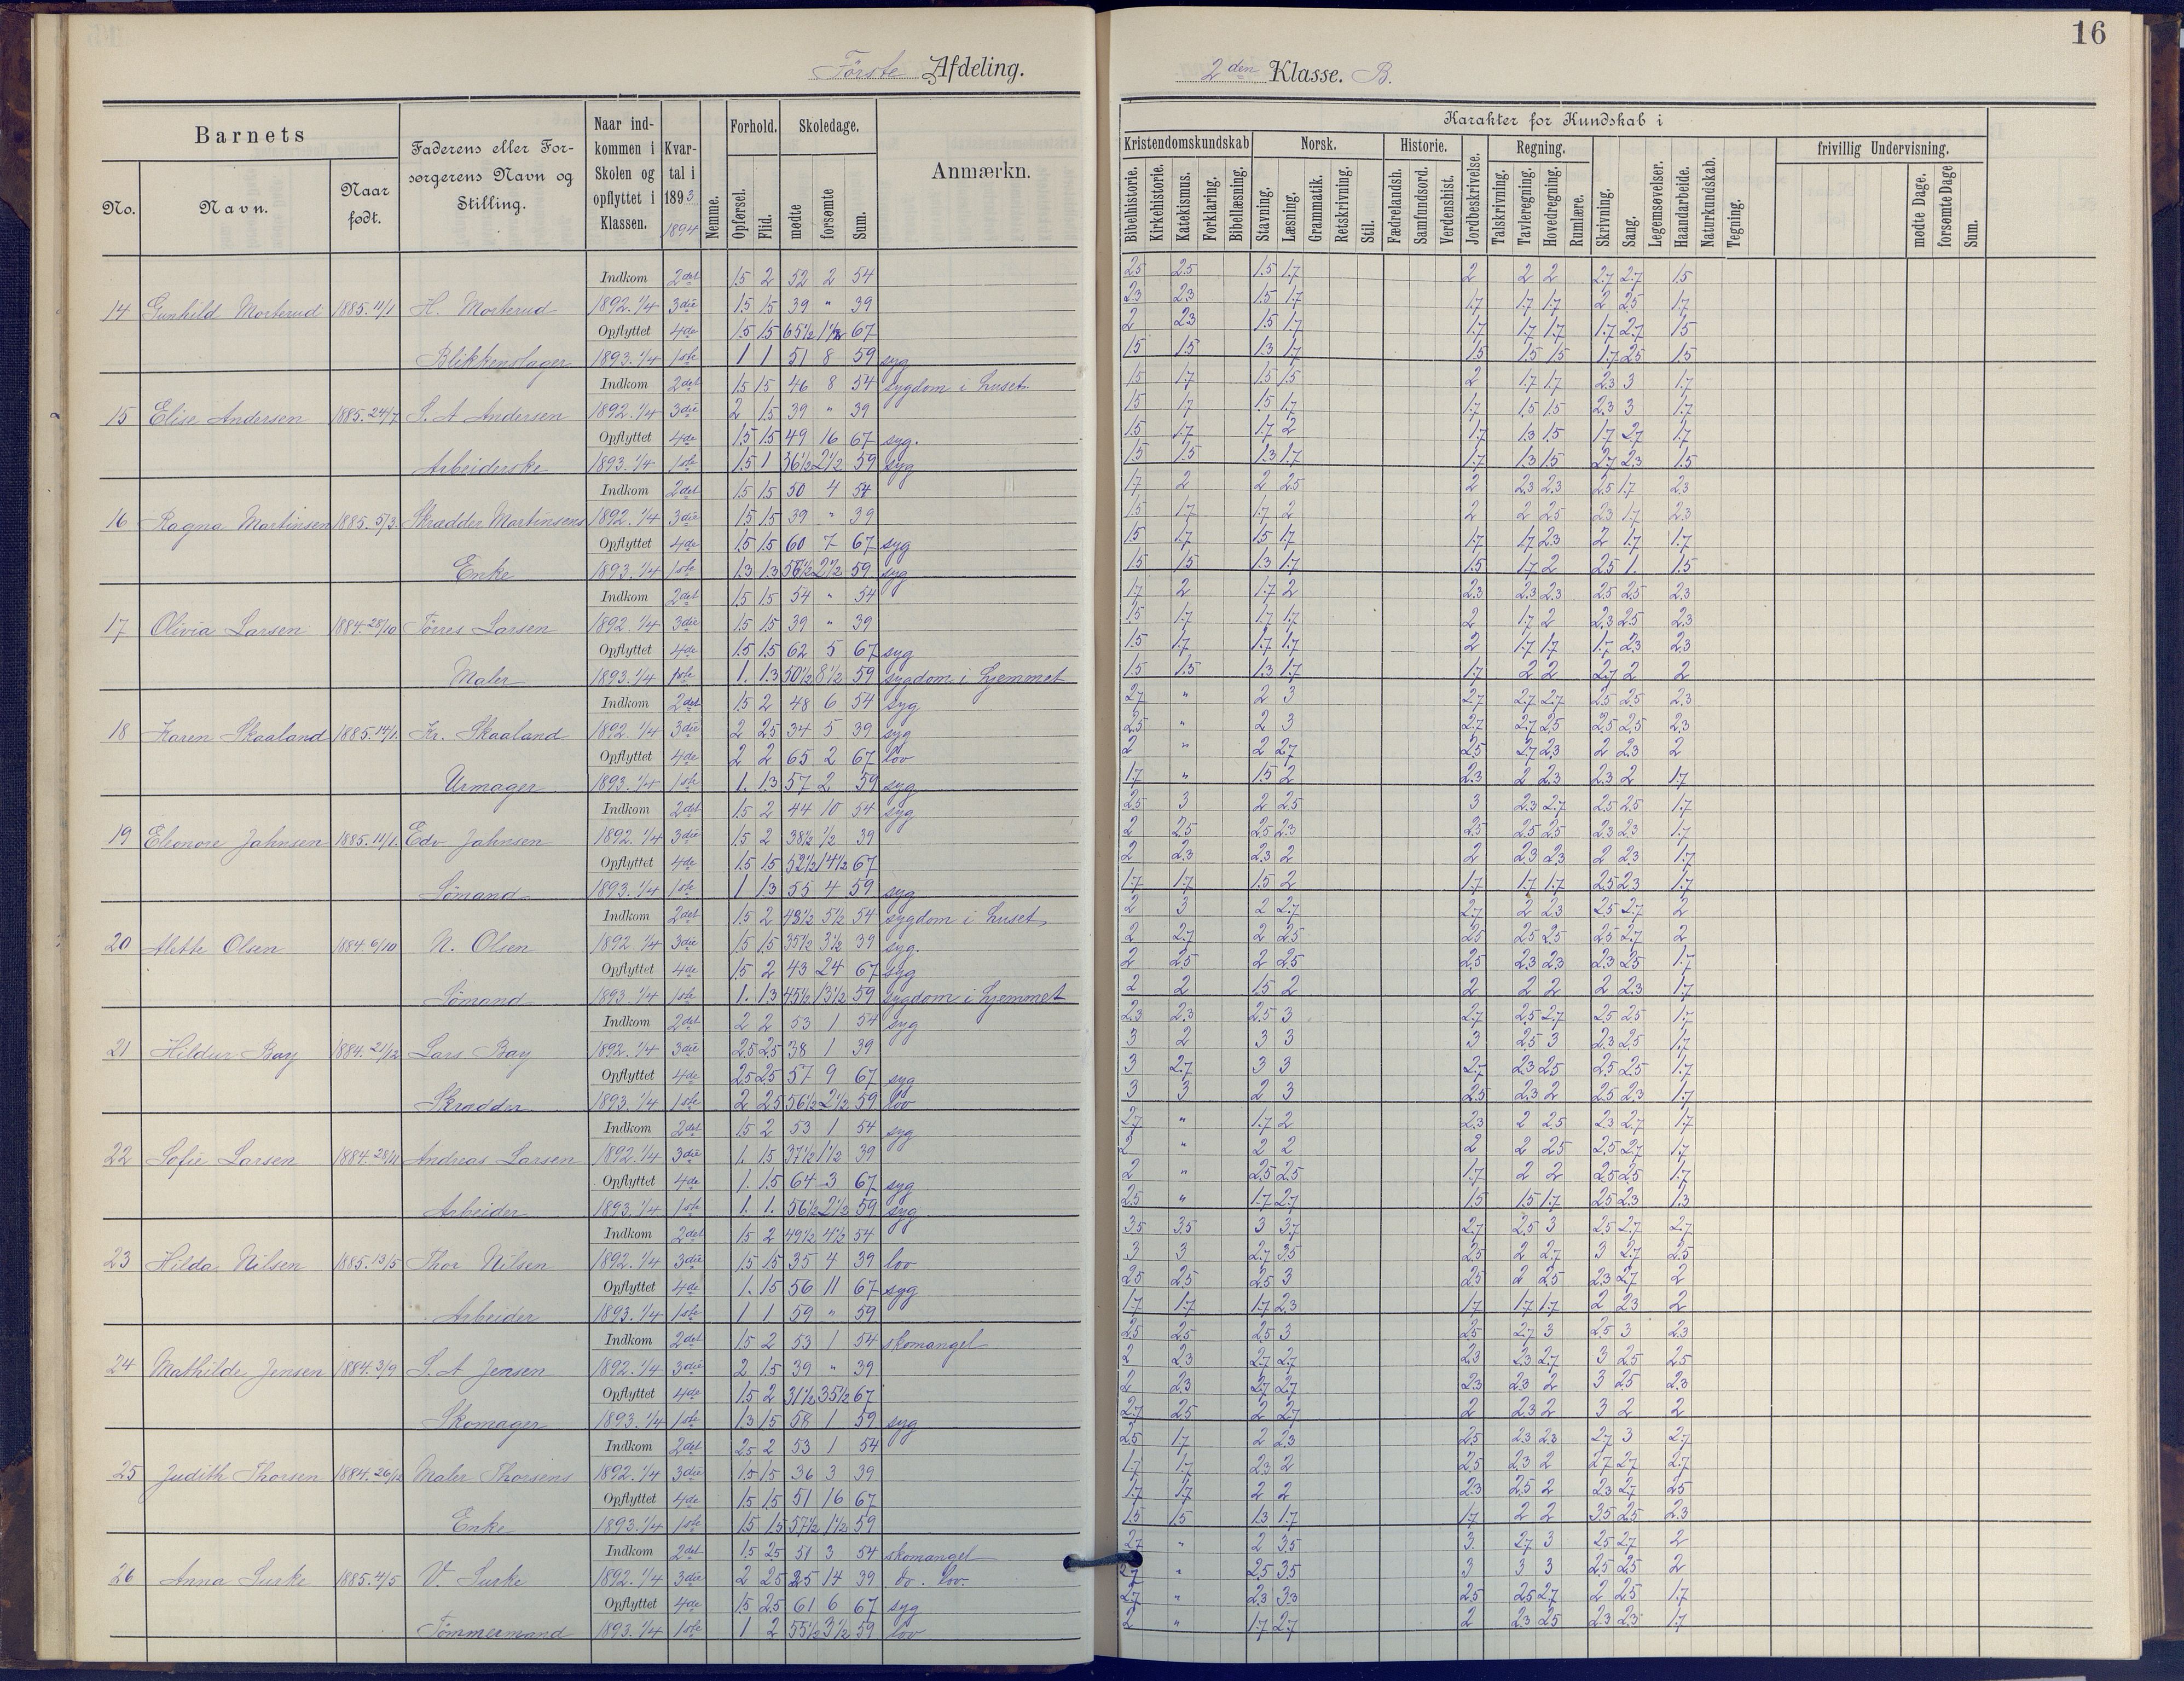 16
Første Afdeling.
2den Klasse. B.
Barnets
No.
Navn.
Naar født.
Faderens eller Forsørgerens Navn og Stilling.
Naar indkommen i Skolen og opflyttet i Klassen.
Kvartal i 1893
1894
Nemme.
Forhold.
Opførsel.
Flid.
Skoledage.
mødte
forsømte
Sum.
Anmærkn.
Karakter for Kundskab i
Kristendomskundskab
Bibelhistorie.
Kirkehistorie.
Katekismus.
Forklaring.
Bibellæsning.
Norsk.
Stavning.
Læsning.
Grammatik.
Retskrivning.
Stil.
Historie.
Fædrelandsh.
Samfundsord.
Verdenshist.
Jordbeskrivelse.
Regning.
Talskrivning.
Tavleregning.
Hovedregning.
Rumlære.
Skrivning.
Sang.
Legemsøvelser.
Haandarbeide.
Naturkundskab.
Tegning.
frivillig Undervisning.
mødte Dage.
forsømte Dage
Sum.
Indkom 2det 1.5 2 52 2 54 2.5 2.5 1.5 1.7 2 2 2 2.7 2.7 1.5
14 Gunhild Morterud 1885. 11/1 H. Morterud 1892. 1/4 3die 1.5 1.5 39 " 39 2.3 2.3 1.5 1.7 1.7 1.7 1.7 2 2.5 1.7
Opflyttet 4de 1.5 1.5 65 1/2 1 1/2 67 2 2.3 1.5 1.7 1.7 1.7 1.7 1.7 2.7 1.5
Blikkenslager 1893. 1/4 1ste 1 1 51 8 59 syg 1.5 1.5 1.3 1.7 1.5 1.5 1.5 1.7 2.5 1.5
Indkom 2det 1.5 1.5 46 8 54 sygdom i huset. 1.5 1.7 1.5 1.5 2 1.7 1.7 2.3 3 1.7
15 Elise Andersen 1885. 24/7 S. A Andersen 1892. 1/4 3die 2 1.5 39 " 39 1.5 1.7 1.5 1.7 1.7 1.5 1.5 2.3 3 1.7
Opflyttet 4de 1.5 1.5 49 16 67 syg. 1.5 1.7 1.7 2 1.7 1.3 1.5 1.7 2.7 1.7
Arbeiderske 1893. 1/4 1ste 1.5 1 36 1/2 2 1/2 59 syg 1.5 1.5 1.3 1.7 1.7 1.3 1.5 2.7 2.3 1.5
Indkom 2det 1.5 1.5 50 4 54 1.7 2 2 2.5 2 2.3 2.3 2.5 1.7 2.3
16 Ragna Martinsen 1885. 5/3. Skrædder Martinsens 1892. 1/4 3die 1.5 1.5 39 " 39 1.5 1.7 1.7 2 2 2 2.5 2.3 1.7 2.3
Opflyttet 4de 1.5 1.5 60 7 67 syg 1.5 1.7 1.5 1.7 1.7 1.7 2.3 2 1.7 1.7
Enke 1893. 1/4 1ste 1.3 1.3 56 1/2 2 1/2 59 syg 1.5 1.5 1.3 1.7 1.5 1.7 2 2.5 1. 1.5
Indkom 2det 1.5 1.5 54 " 54 1.7 2 1.7 2 2.3 2.3 2.3 2.5 2.5 2.3
17 Olivia Larsen 1884. 28/10 Tørres Larsen 1892 1/4 3die 1.5 1.5 39 " 39 1.5 1.7 1.7 1.7 2 1.7 2 2.3 2.5 2.3
Opflyttet 4de 1.5 1.5 62 5 67 syg 1.5 1.7 1.7 1.7 2 1.7 1.7 1.7 2.3 2.3
Maler 1893. 1/4 1ste 1. 1.3 50 1/2 8 1/2 59 sygdom i hjemmet 1.5 1.5 1.3 1.7 1.7 2 2 2.7 2 2
Indkom 2det 1.5 2 48 6 54 syg 2.7 " 2 3 2.7 2.7 2.7 2.5 2.5 2.3
18 Karen Skaaland 1885. 14/1. Kr. Skaaland 1892 1/4 3die 2 2.5 34 5 39 syg 2.5 " 2 3 2.7 2.7 2.5 2.5 2.5 2.3
Opflyttet 4de 2 2 65 2 67 lov 2 " 2 2.7 2.5 2.7 2.3 2 2.3 2
Urmager 1893. 1/4 1ste 1. 1.3 57 2 59 syg 1.7 " 1.5 2 2.3 2 2.3 2.3 2 1.7
Indkom 2det 1.5 2 44 10 54 syg 2.5 3 2 2.5 3 2.3 2.7 2.5 2.5 1.7
19 Eleonore Jahnsen 1885. 11/1. Edv. Jahnsen 1892 1/4 3die 1.5 2 38 1/2 1/2 39 2 2.5 2.5 2.3 2.5 2.5 2.5 2.3 2.3 1.7
Opflyttet 4de 1.5 1.5 52 1/2 14 1/2 67 2 2.3 2.3 2 2 2.3 2.3 2 2.3 1.7
Sømand 1893. 1/4 1ste 1 1.3 55 4 59 syg 1.7 1.7 1.5 2 1.7 1.7 1.7 2.5 2.3 1.7
Indkom 2det 1.5 2 48 1/2 5 1/2 54 sygdom i huset, 2 3 2 2.7 2.7 2 2.3 2.5 2.7 2
20 Alette Olsen 1884. 6/10 N. Olsen 1892 1/4 3die 1.5 1.5 35 1/2 3 1/2 39 syg. 2 2.7 2 2.5 2.5 2.5 2.5 2.5 2.7 2
Opflyttet 4de 1.5 2 43 24 67 syg 2 2.5 2 2.5 2.5 2.3 2.3 2.3 2.5 1.7
Sømand 1893. 1/4 1ste 1. 1.3 45 1/2 13 1/2 59 sygdom i hjemmet 2 2 1.5 2 2 2 2 2 2.3 1.7
Indkom 2det 2 2 53 1 54 syg 2.3 2.3 2.5 3 2.7 2.5 2.7 2.5 2.5 1.7
21 Hildur Bay 1884. 21/12 Lars Bay 1892. 1/4 3die 2.5 2.5 38 1 39 3 2 3 3 3 2.5 3 2.3 2.5 1.7
Opflyttet 4de 2.5 2.5 57 9 67 syg 3 2.7 3 3 2.7 2.3 2.5 2.5 2.5 1.7
Skrædder 1893. 1/4 1ste 2 2.5 56 1/2 2 1/2 59 lov 3 3 2 3 2.5 2.3 2 2.5 2.3 1.7
Indkom 2det 1.5 2 53 1 54 syg 2.7 " 1.7 2 2.3 2 2.5 2.3 2.7 1.7
22 Sofie Larsen 1884. 28/11 Andreas Larsen 1892. 1/4 3die 1. 1.5 37 1/2 1 1/2 39 2 " 2 2 2 2 2.5 2.5 2.7 1.7
Opflyttet 4de 1. 1.5 64 3 67 syg 2 " 2.5 2.5 1.7 2 2 2.5 2.5 1.7
Arbeider 1893. 1/4 1ste 1. 1. 56 1/2 2 1/2 59 syg 2.5 " 1.7 2.7 1.5 1.5 1.7 2.5 2.3 1.3
Indkom 2det 1.5 2 49 1/2 4 1/2 54 3.5 3.5 3 3.7 2.7 2.5 3 2.5 2.7 2.7
23 Hilda Nilsen 1885. 13/5 Thor Nilsen 1892. 1/4 3die 1.5 1.5 35 4 39 lov 3 3 2.7 3.5 2.5 2 2.7 3 2.7 2.5
Opflyttet 4de 1. 1.5 56 11 67 syg 2.5 2.5 2.5 3 2.5 2 2.5 2.3 2.7 2
Arbeider 1893. 1/4 1ste 1 1 59 " 59 1.7 1.7 1.7 2.3 1.7 1.7 1.7 2 2.3 2
Indkom 2det 1.5 2 53 1 54 skomangel 2.5 2.5 2.5 3 2.5 2.7 3 2.5 3 2.3
24 Mathilde Jensen 1884. 3/9 S. A Jensen 1892. 1/4 3die 2 1.5 39 " 39 2 2.3 2.7 2.7 2.3 2.3 2.7 3 2.5 2.5
Opflyttet 4de 1.5 2 31 1/2 35 1/2 67 2 2.3 2.7 2.7 2.3 2.3 2 3 2.5 2.3
Skomager 1893. 1/4 1ste 1.3 1.5 58 1 59 syg 2.7 2.5 2 2.7 2 2.3 2 3 2 2
Indkom 2det 2.5 2 53 1 54 2.5 1.7 2 2.3 2.5 2.3 2.3 2.7 3 2.7
25 Judith Thorsen 1884. 26/12 Maler Thorsens 1892. 1/4 3die 1.5 1.5 36 3 39 1.7 1.7 2.3 2 2.5 2.3 2 2.7 2.7 2.7
Opflyttet 4de 1.5 1.5 51 16 67 1.7 1.7 2 2 2.3 2.5 2 2.3 2.7 2.5
Enke 1893. 1/4 1ste 1.5 1.5 57 1/2 1 1/2 59 1.5 1.5 1.3 1.7 1.7 2 2 3.5 2.5 2.3
Indkom 2det 1.5 2.5 51 3 54 skomangel 2.7 " 2 3.5 3. 2.7 3 2.5 2.7 2
26 Anna Surke 1885. 4/5 V. Surke 1892. 1/4 3die 2 2.5 25 14 39 do. lov. 2.7 " 2.5 3.5 3 3 3 2.5 2.5 2
Opflyttet 4de 1.5 2.5 61 6 67 syg 2.7 " 2.3 3.3 2.5 2.5 2.7 2 2.5 1.7
Tømmermand 1893. 1/4 1ste 1 2 55 1/2 3 1/2 59 lov 2 " 1.7 2.7 2 2.3 2.5 2.3 2.3 1.7